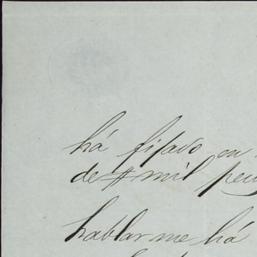 há fijado en
de $ mil pesos
hablar me há